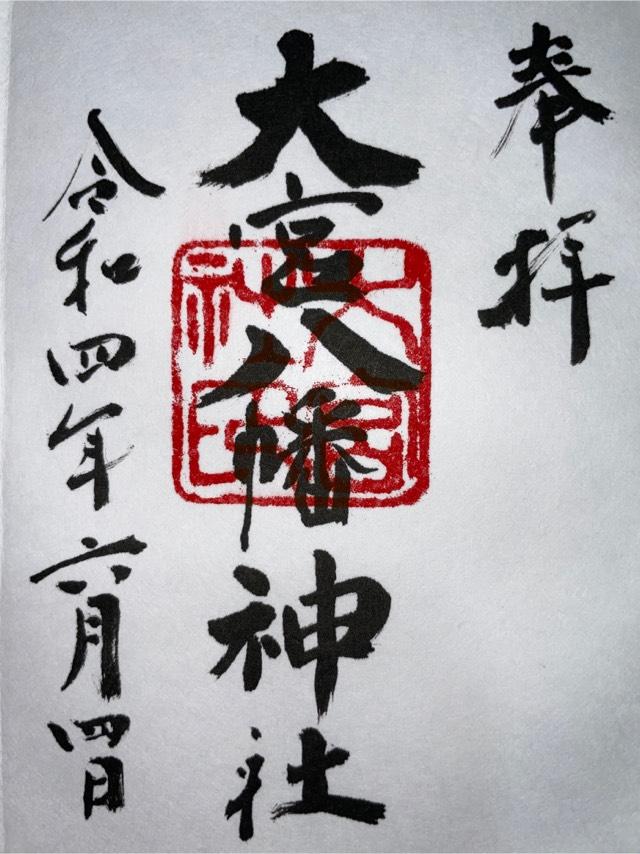 奉拝
大宮八幡神社
令和四年六月四日